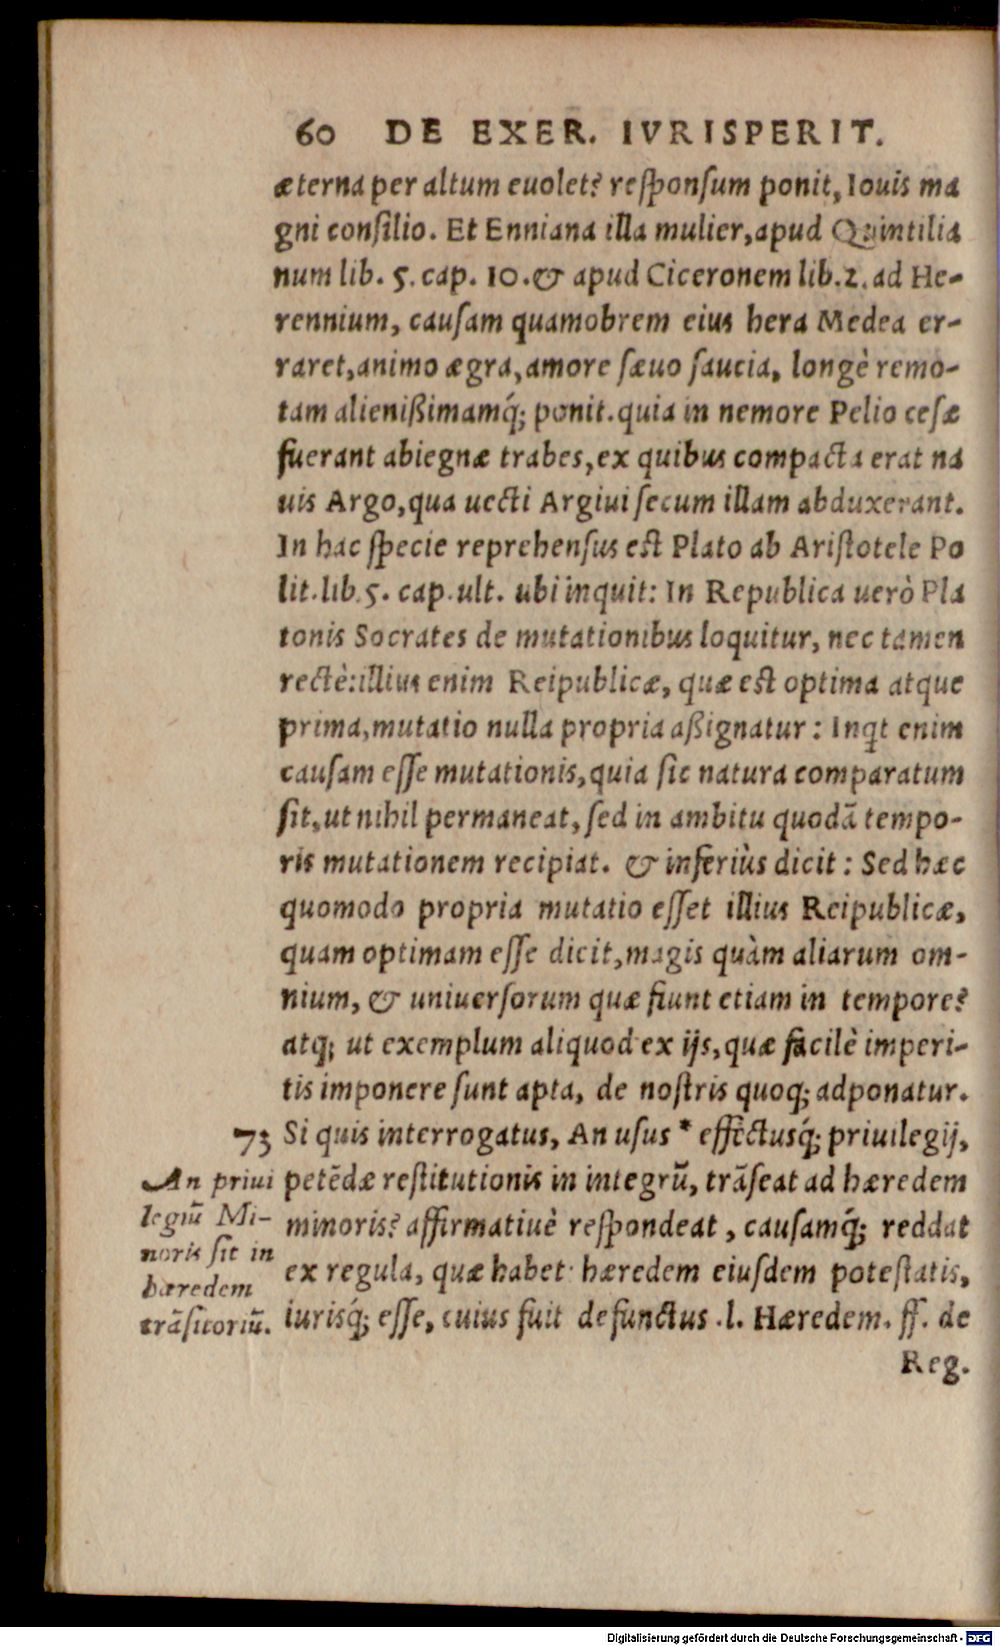 60 DE EXER. IVRISPERIT.
æterna per altum euolet? responsum ponit, Iouis ma
gni consilio. Et Enniana illa mulier, apud Quintilia
num lib. 5. cap. 10. & apud Ciceronem lib. 2. ad He-
rennium, causam quamobrem eius hera Medea er-
raret, animo ægra, amore sæuo saucia, longè remo-
tam alienißimamq́; ponit. quia in nemore Pelio cesæ
fuerant abiegnæ trabes, ex quibus compacta erat na
uis Argo, qua uecti Argiui secum illam abduxerant.
In hac specie reprehensus est Plato ab Aristotele Po
lit. lib. 5. cap. ult. ubi inquit: In Republica uerò Pla
tonis Socrates de mutationibus loquitur, nec tamen
rectè: illius enim Reipublicæ, quæ est optima atque
prima, mutatio nulla propria aßignatur: Inqt enim
causam esse mutationis, quia sic natura comparatum
sit, ut nihil permaneat, sed in ambitu quodã tempo-
ris mutationem recipiat. & inferiùs dicit: Sed hæc
quomodo propria mutatio esset illius Reipublicæ,
quam optimam esse dicit, magis quàm aliarum om-
nium, & uniuersorum quæ fiunt etiam in tempore?
atq; ut exemplum aliquod ex ijs, quæ facilè imperi-
tis imponere sunt apta, de nostris quoq; adponatur.
73 Si quis interrogatus, An usus * effectusq́; priuilegij,
petẽdæ restitutionis in integrũ, trãseat ad hæredem
minoris? affirmatiuè respondeat, causamq́; reddat
ex regula, quæ habet hæredem eiusdem potestatis,
iurisq́; esse, cuius fuit defunctus .l. Hæredem. ff. de
Reg.
An priui
legiũ Mi-
noris sit in
hæredem
trãsitoriũ.
Digitalisierung gefördert durch die Deutsche Forschungsgemeinschaft - DFG